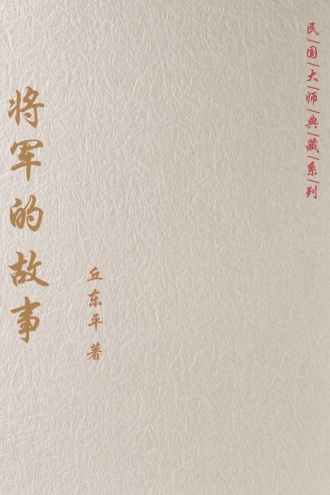 民|国|大|师|典|藏|系|列
将军的故事
丘东平 著